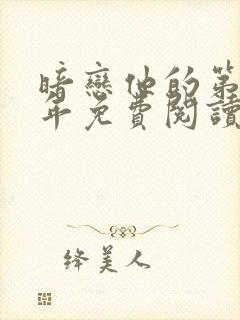 暗戀他的第
年免費閱讀
绛美人